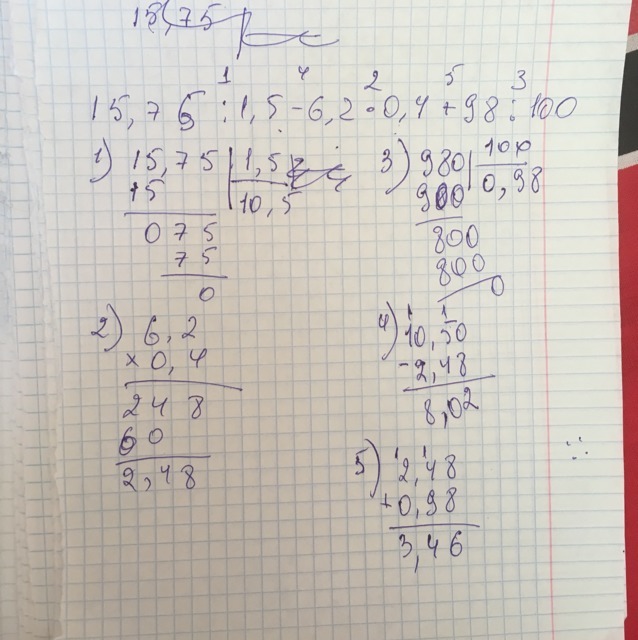 18,75
1 4 2 5 3
15,75 : 1,5 - 6,2 · 0,4 + 98 : 100
1) 15,75 | 1,5
15 | 10,5
075
75
0
2) 6,2
× 0,4
248
60
2,48
3) 980 | 100
900 | 0,98
800
800
0
4) 10,50
- 2,48
8,02
5) 2,48
+ 0,98
3,46